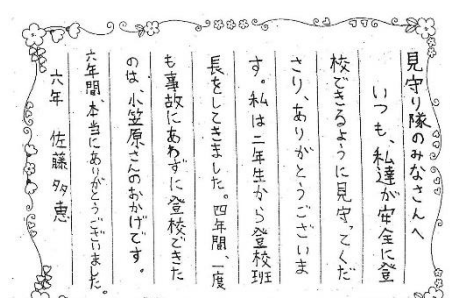 見守り隊のみなさんへ
いつも、私達が安全に登
校できるように見守ってくだ
さり、ありがとうございま
す。私は二年生から登校班
長をしてきました。四年間、一度
も事故にあわずに登校できた
のは、小笠原さんのおかげです。
六年間、本当にありがとうございました。
六年 佐藤多恵